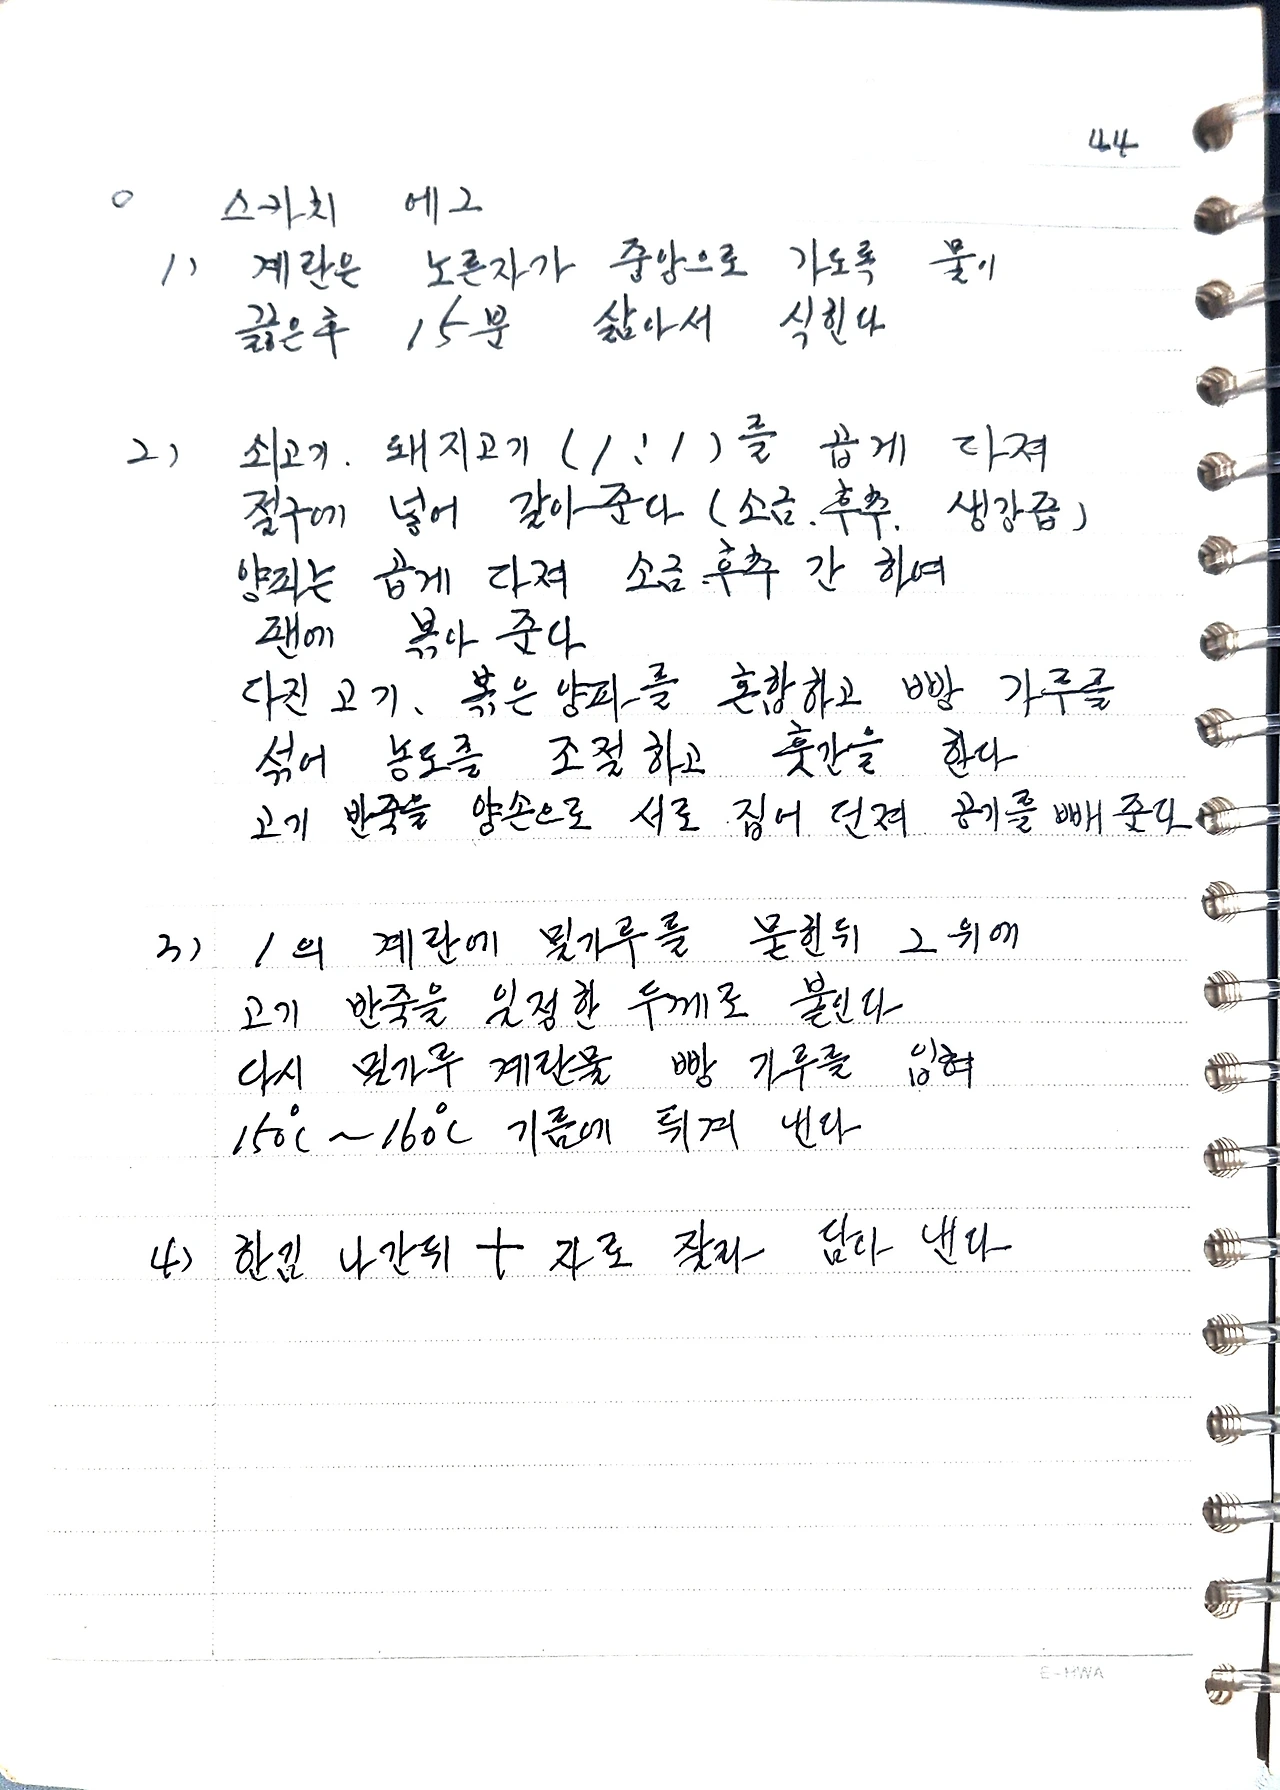 44
○ 스카치 에그
1) 계란은 노른자가 중앙으로 가도록 물이
끓은후 15분 삶아서 식힌다
2) 쇠고기. 돼지고기 (1:1)를 곱게 다져
절구에 넣어 갈아준다 (소금.후추. 생강즙)
양파는 곱게 다져 소금.후추 간 하여
팬에 볶아 준다
다진 고기、볶은양파를 혼합하고 빵 가루를
섞어 농도를 조절하고 훗간을 한다
고기 반죽을 양손으로 서로 집어 던져 공기를 빼준다
3) 1의 계란에 밀가루를 묻힌뒤 그 위에
고기 반죽을 일정한 두께로 붙인다
다시 밀가루 계란물 빵 가루를 입혀
150℃~160℃ 기름에 튀겨 낸다
4) 한김 나간뒤 + 자로 잘라 담아 낸다
E-HWA